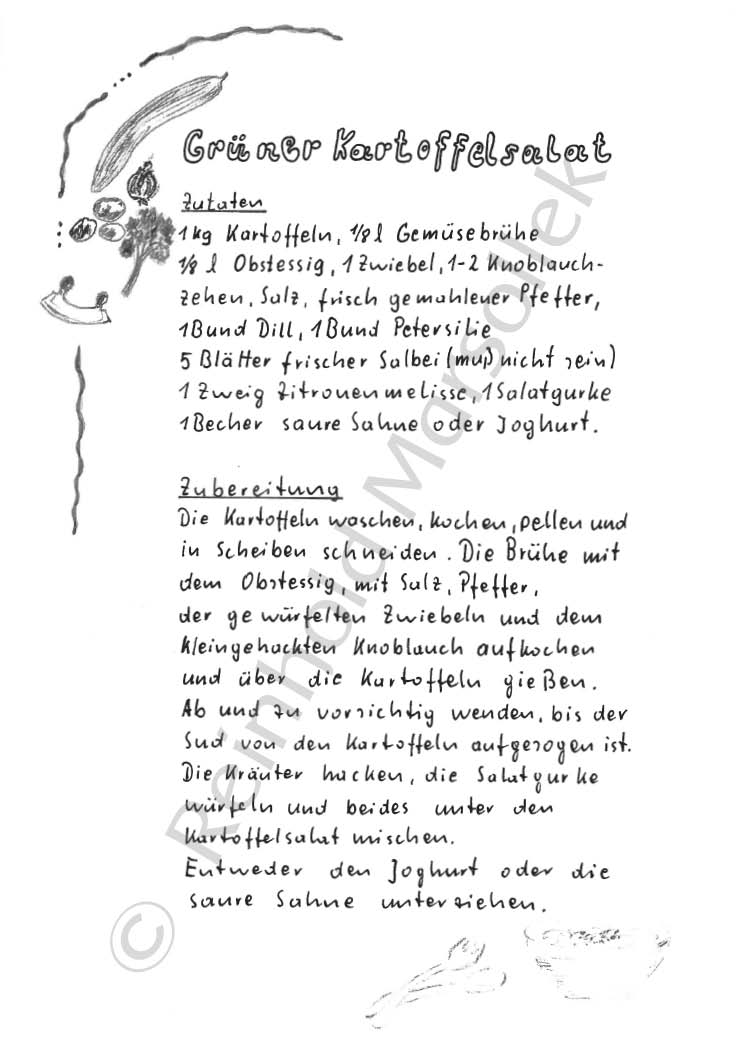 Grüner Kartoffelsalat
Zutaten
1 kg Kartoffeln, 1/8 l Gemüsebrühe
1/8 l Obstessig, 1 Zwiebel, 1-2 Knoblauch-
zehen, Salz, frisch gemahlener Pfeffer,
1 Bund Dill, 1 Bund Petersilie
5 Blätter frischer Salbei (muß nicht sein)
1 Zweig Zitronenmelisse, 1 Salatgurke
1 Becher saure Sahne oder Joghurt.
Zubereitung
Die Kartoffeln waschen, kochen, pellen und
in Scheiben schneiden. Die Brühe mit
dem Obstessig, mit Salz, Pfeffer,
der gewürfelten Zwiebeln und dem
kleingehackten Knoblauch aufkochen
und über die Kartoffeln gießen.
Ab und zu vorsichtig wenden, bis der
Sud von den Kartoffeln aufgezogen ist.
Die Kräuter hacken, die Salatgurke
würfeln und beides unter den
Kartoffelsalat mischen.
Entweder den Joghurt oder die
saure Sahne unterziehen.
© Reinhold Marsollek